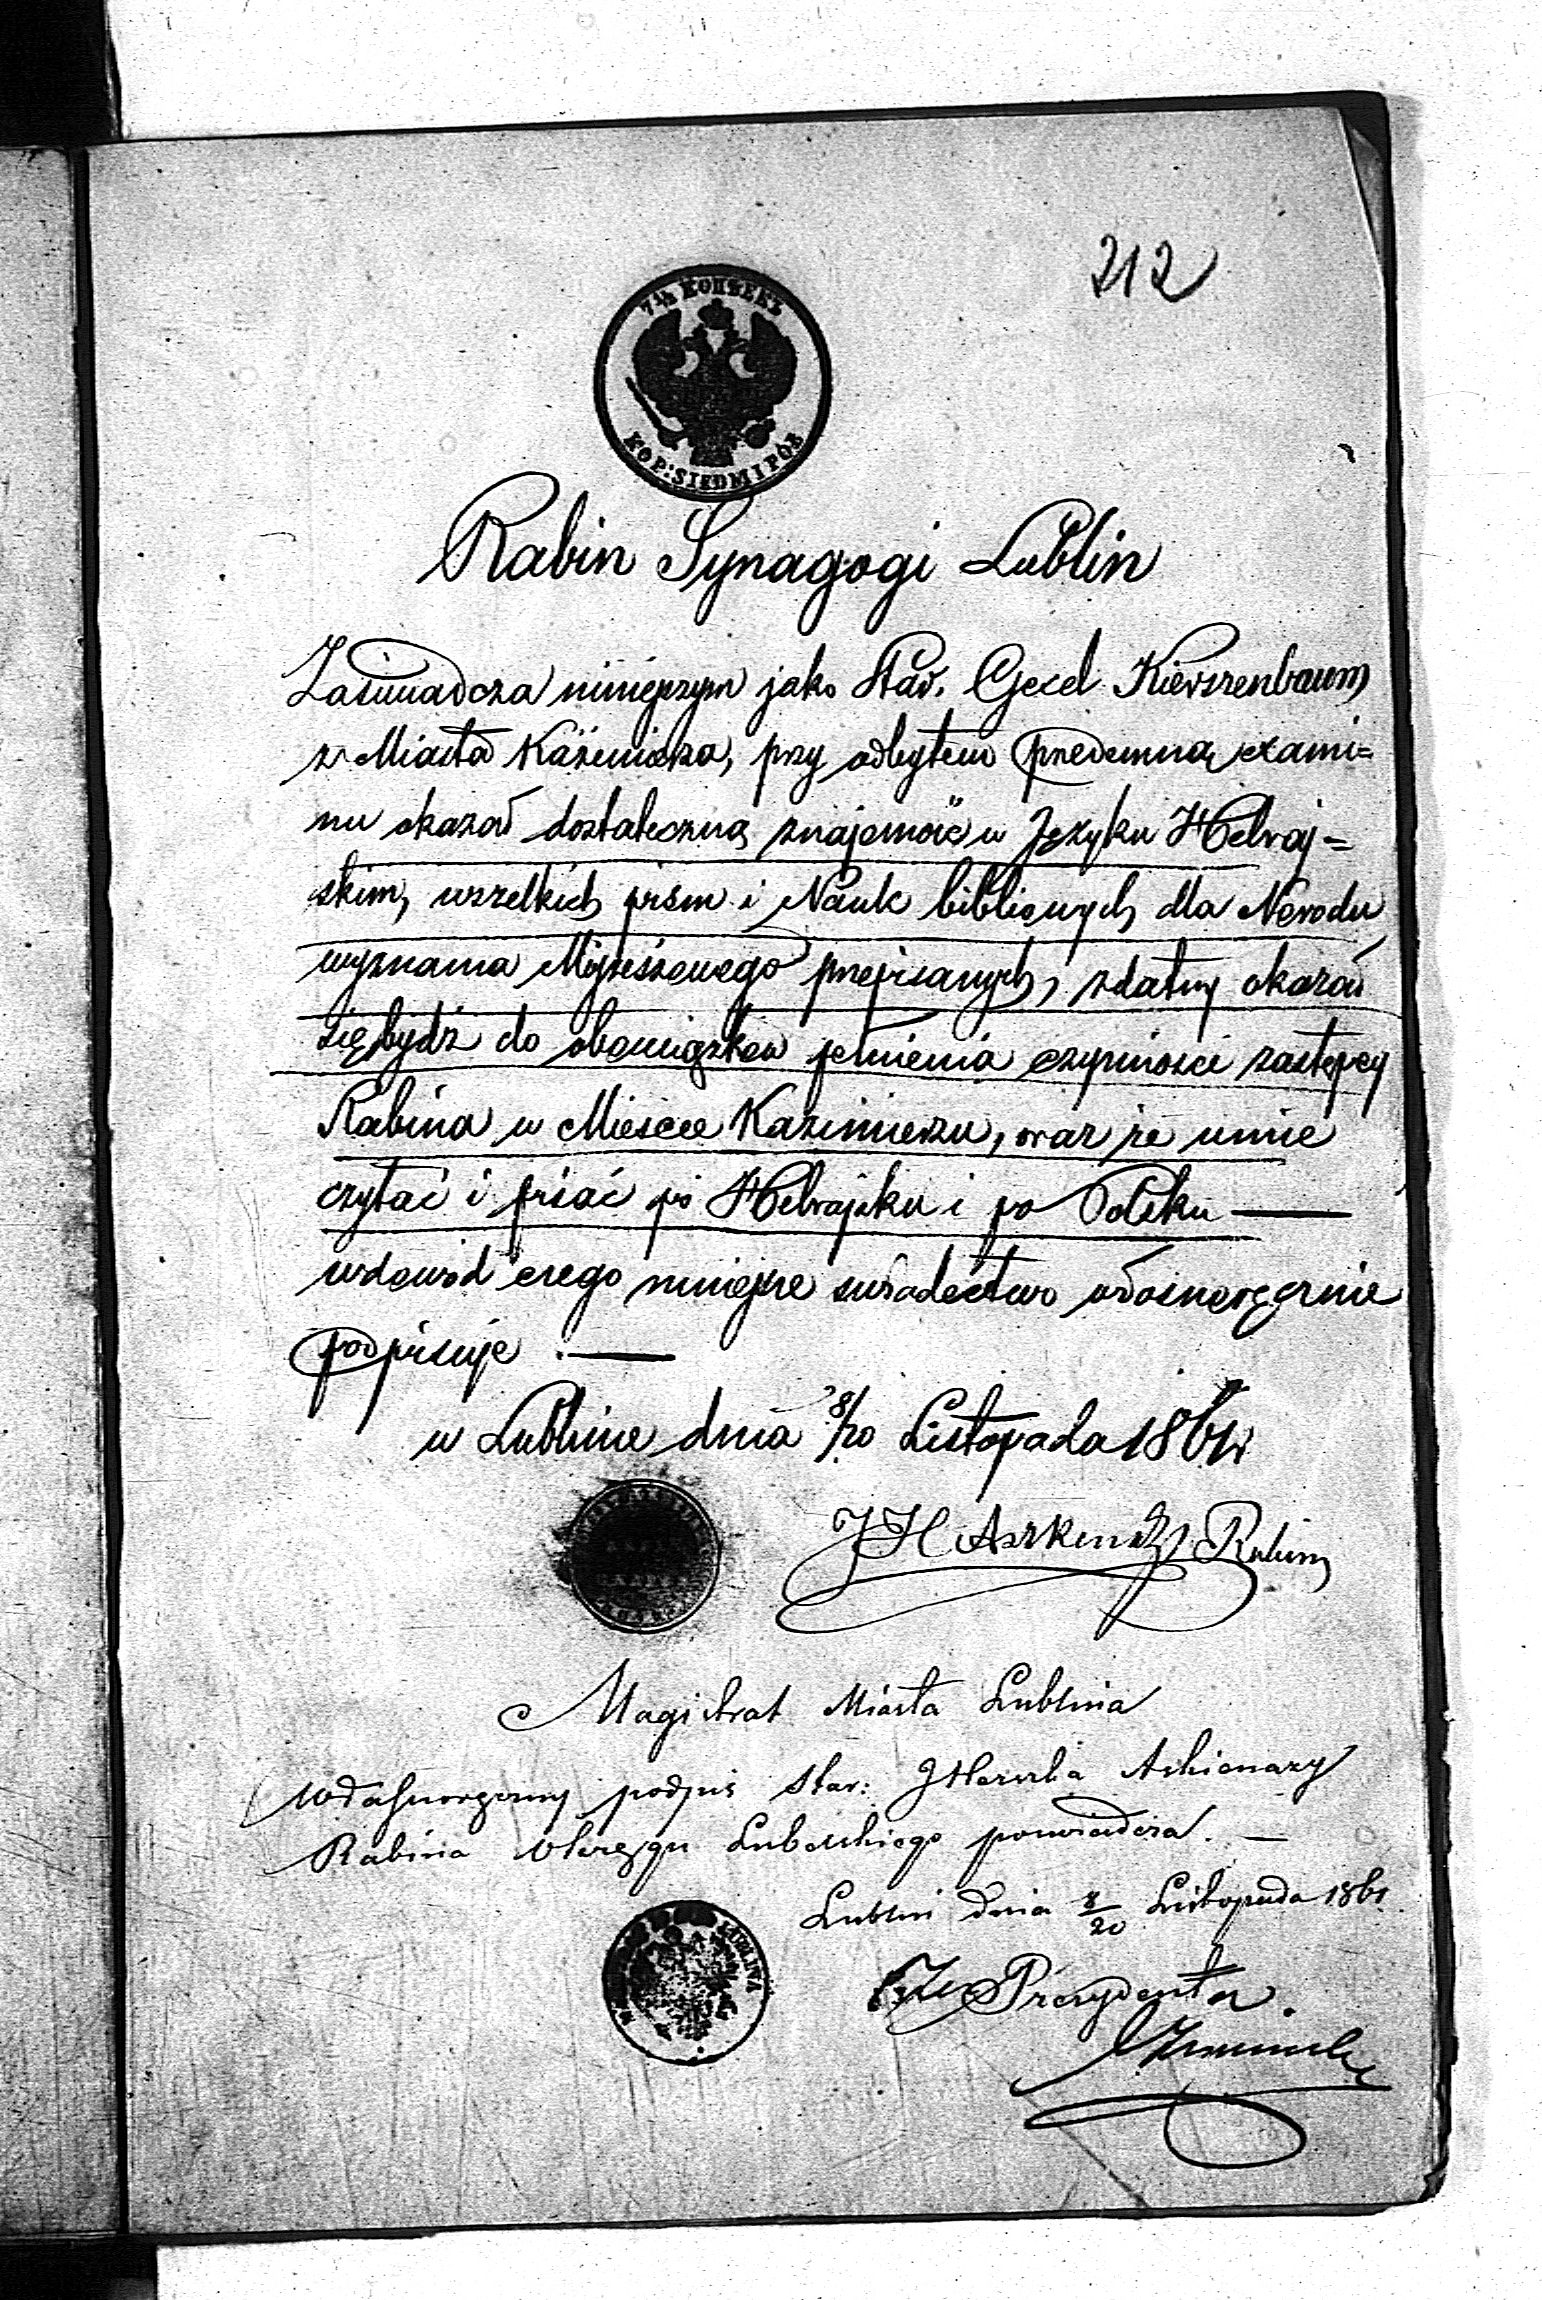 212
7½ КОПѢЕКЪ
KOP: SIEDM I PÓŁ
Rabin Synagogi Lublin
Zaświadcza niniejszym jako Star. Gecel Kierszenbaum
z Miasta Kaźmierza, przy odbytem przedemną exami=
nu okazał dostateczną znajomość w Języku Hebraj=
skim, wszelkich pism i Nauk biblijnych dla Narodu
wyznania Mojżeszowego przepisanych, zdatny okazał
się bydź do obowiązków pełnienia czynności zastępcy
Rabina w Mieście Kazimierzu, oraz że umie
czytać i pisać po Hebrajsku i po Polsku —
w dowód czego niniejsze świadectwo własnoręcznie
podpisuje. —
w Lublinie dnia 8/20 Listopada 1861 r.
J H Aszkenazy Rabin
Magistrat Miasta Lublina
Własnoręczny podpis Star: Aszkenazy
Rabina Okręgu Lubelskiego poświadcza. —
Lublin dnia 8/20 Listopada 1861.
Prezydenta.
LUBLINA